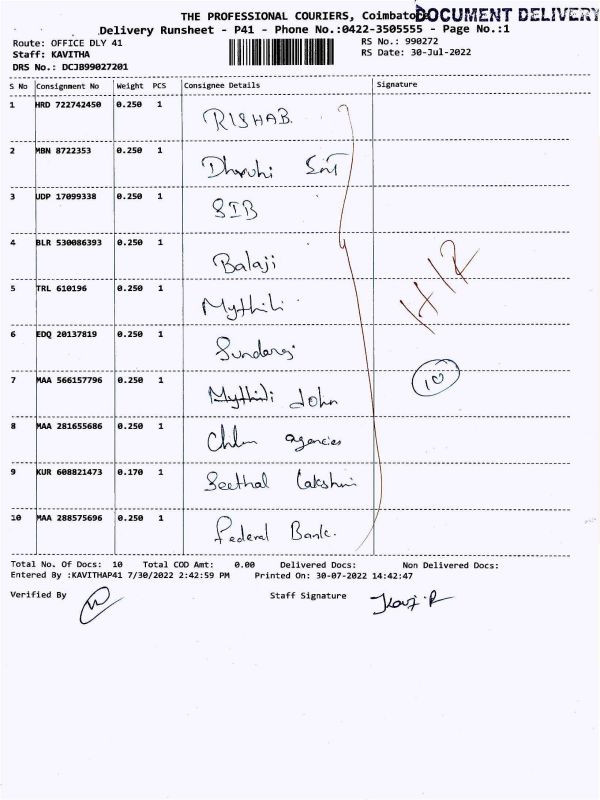 THE PROFESSIONAL COURIERS, Coimbato
DOCUMENT DELIVERY
Delivery Runsheet - P41 - Phone No.:0422-3505555 - Page No.:1
Route: OFFICE DLY 41 RS No.: 990272
Staff: KAVITHA RS Date: 30-Jul-2022
DRS No.: DCJB99027201
S No Consignment No Weight PCS Consignee Details Signature
1 HRD 722742450 0.250 1 RISHAB.
2 MBN 8722353 0.250 1
3 UDP 17099338 0.250 1 SIB
4 BLR 530086393 0.250 1 Balaji
5 TRL 610196 0.250 1 Mythili
6 EDQ 20137819 0.250 1
7 MAA 566157796 0.250 1 Mythili John
8 MAA 281655686 0.250 1 agencies
9 KUR 608821473 0.170 1 Seethal Lakshmi
10 MAA 288575696 0.250 1 Federal Bank.
H/R
10
Total No. Of Docs: 10 Total COD Amt: 0.00 Delivered Docs: Non Delivered Docs:
Entered By :KAVITHAP41 7/30/2022 2:42:59 PM Printed On: 30-07-2022 14:42:47
Verified By Staff Signature